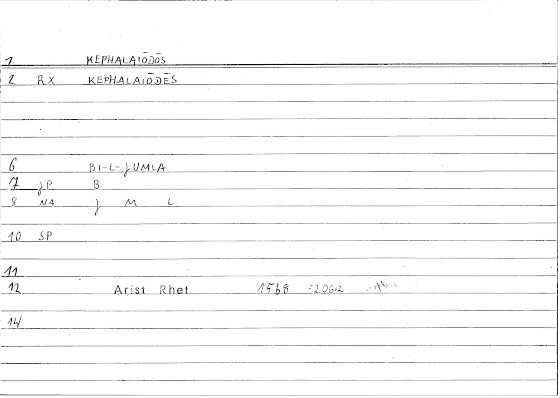 1 KEPHALAIŌDŌS
2 RX KEPHALAIŌDĒS
6 BI-L-JUMLA
7 JP B
8 NA J M L
10 SP
11
12 Arist Rhet 1568 =2062
14